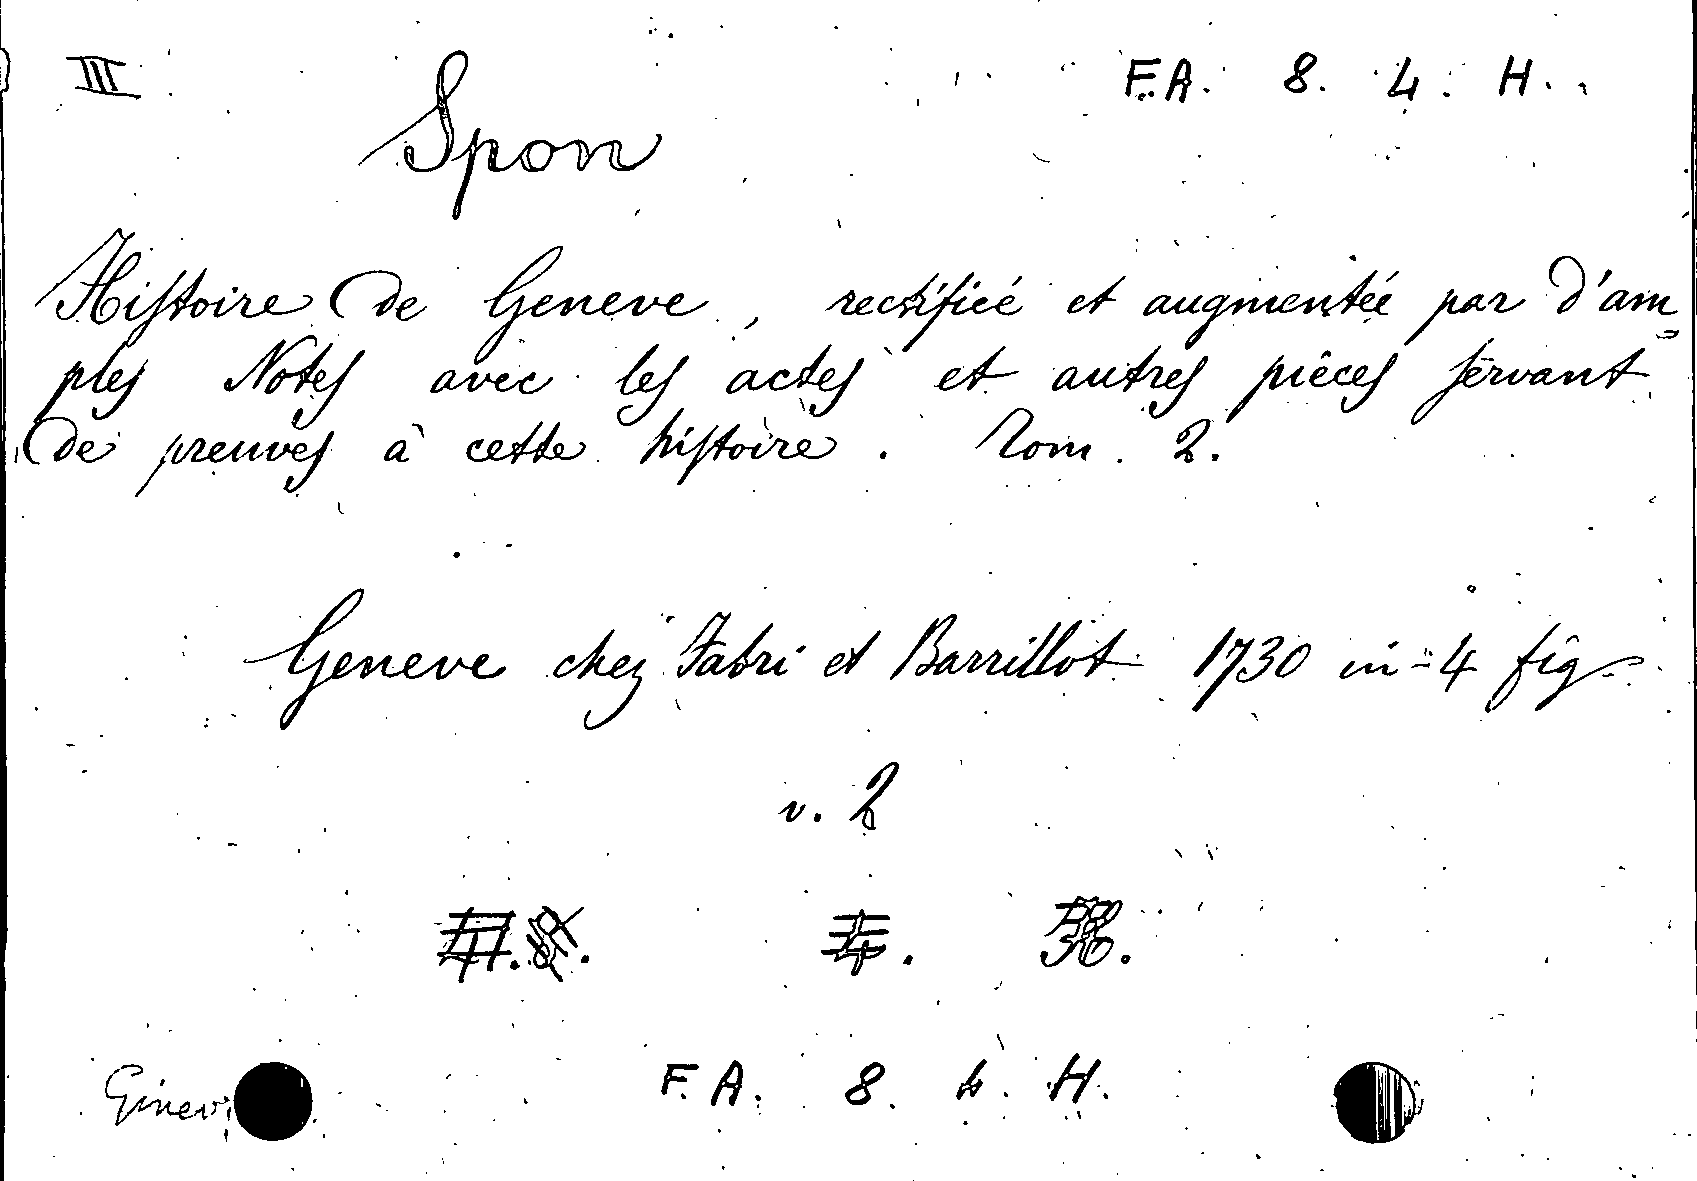 III F.A. 8. 4. H.
Spon
Histoire de Geneve, rectifieé et augmenteé par d'am
ples Notes avec les actes et autres pièces servant
de preuves à cette histoire. Tom. 2.
Geneve chez Fabri et Barrillot 1730 in-4 fig
v. 2
F. A. 8. 4. H.